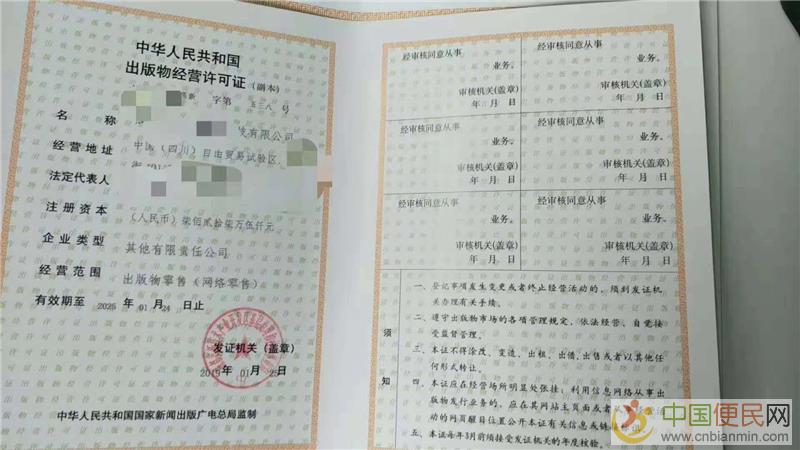 中华人民共和国
出版物经营许可证(副本)
字第 五三八 号
名 称 有限公司
经营地址 中国(四川)自由贸易试验区
法定代表人
注册资本 (人民币)柒佰贰拾柒万伍仟元
企业类型 其他有限责任公司
经营范围 出版物零售(网络零售)
有效期至 2025 年 01 月 24 日止
发证机关(盖章)
2019 年 01 月 25 日
中华人民共和国国家新闻出版广电总局监制
经审核同意从事
业务。
审核机关(盖章)
年 月 日
经审核同意从事
业务。
审核机关(盖章)
年 月 日
经审核同意从事
业务。
审核机关(盖章)
年 月 日
经审核同意从事
业务。
审核机关(盖章)
年 月 日
经审核同意从事
业务。
审核机关(盖章)
年 月 日
经审核同意从事
业务。
审核机关(盖章)
年 月 日
须知
一、登记事项发生变更或者终止经营活动的,须到发证机
关办理有关手续。
二、遵守出版物市场的各项管理规定,依法经营、自觉接
受监督管理。
三、本证不得涂改、变造、出租、出借、出售或者以其他任
何形式转让。
四、本证应在经营场所明显处张挂,利用信息网络从事出
版物发行业务的,应在其网站主页面或者
动的网页醒目位置公开本证有关信息或链接标识。
五、本证每年3月前须接受发证机关的年度核验。
中国便民网
www.cnbianmin.com